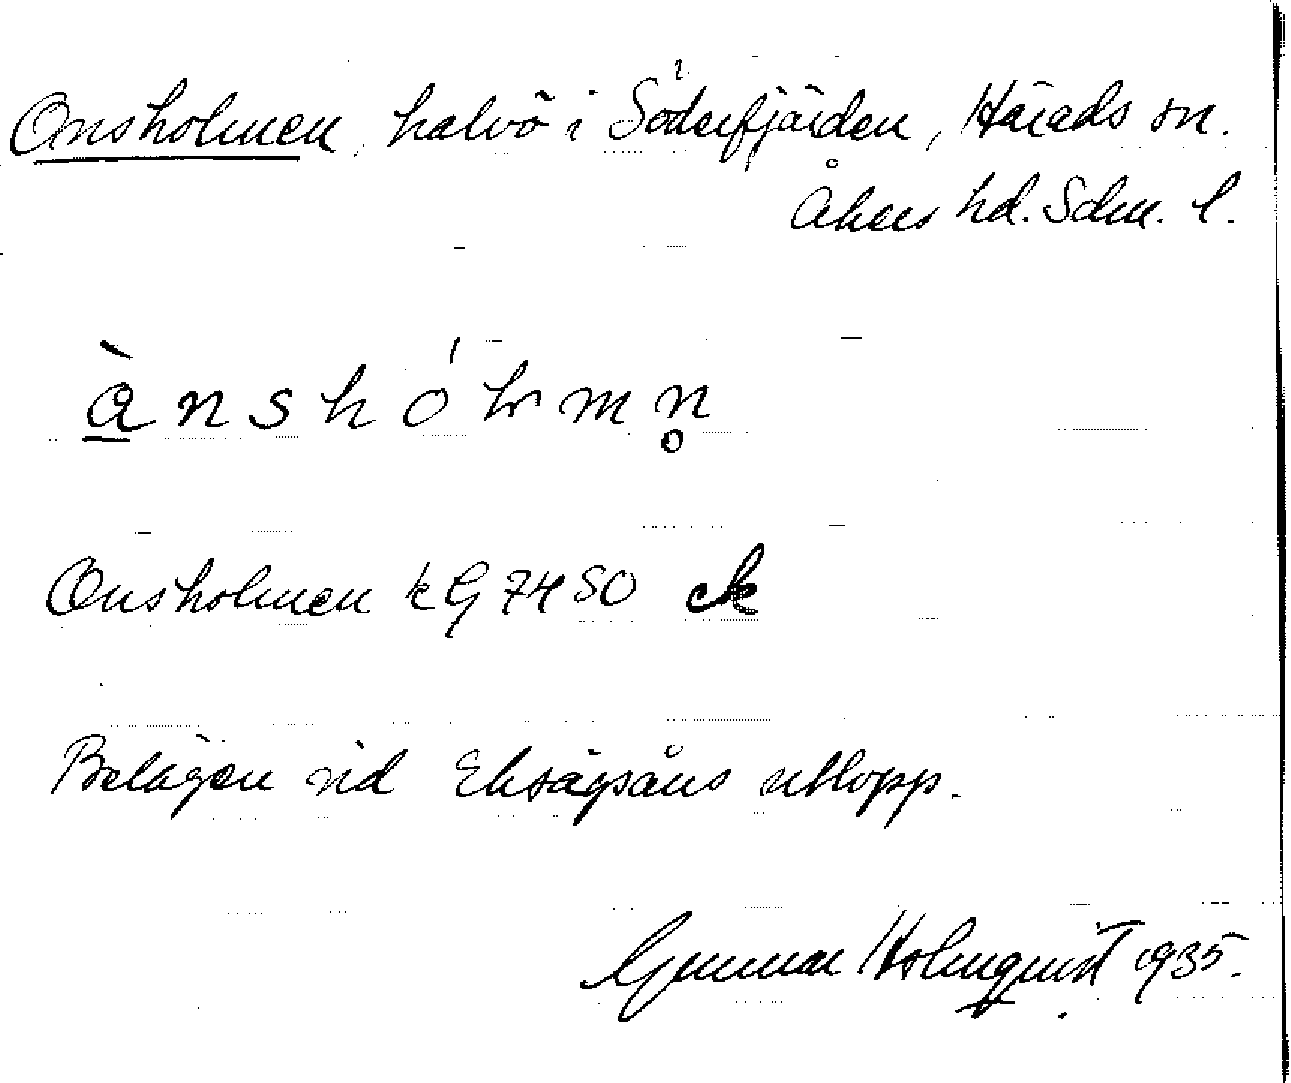 Onsholmen, halvö i Söderfjärden, Härads sn.
Åkers hd. Sdm. l.
ànshólmn̥
Onsholmen kG 7450 ek
Belägen vid Eksågsåns utlopp.
Gunnar Holmquist 1935.